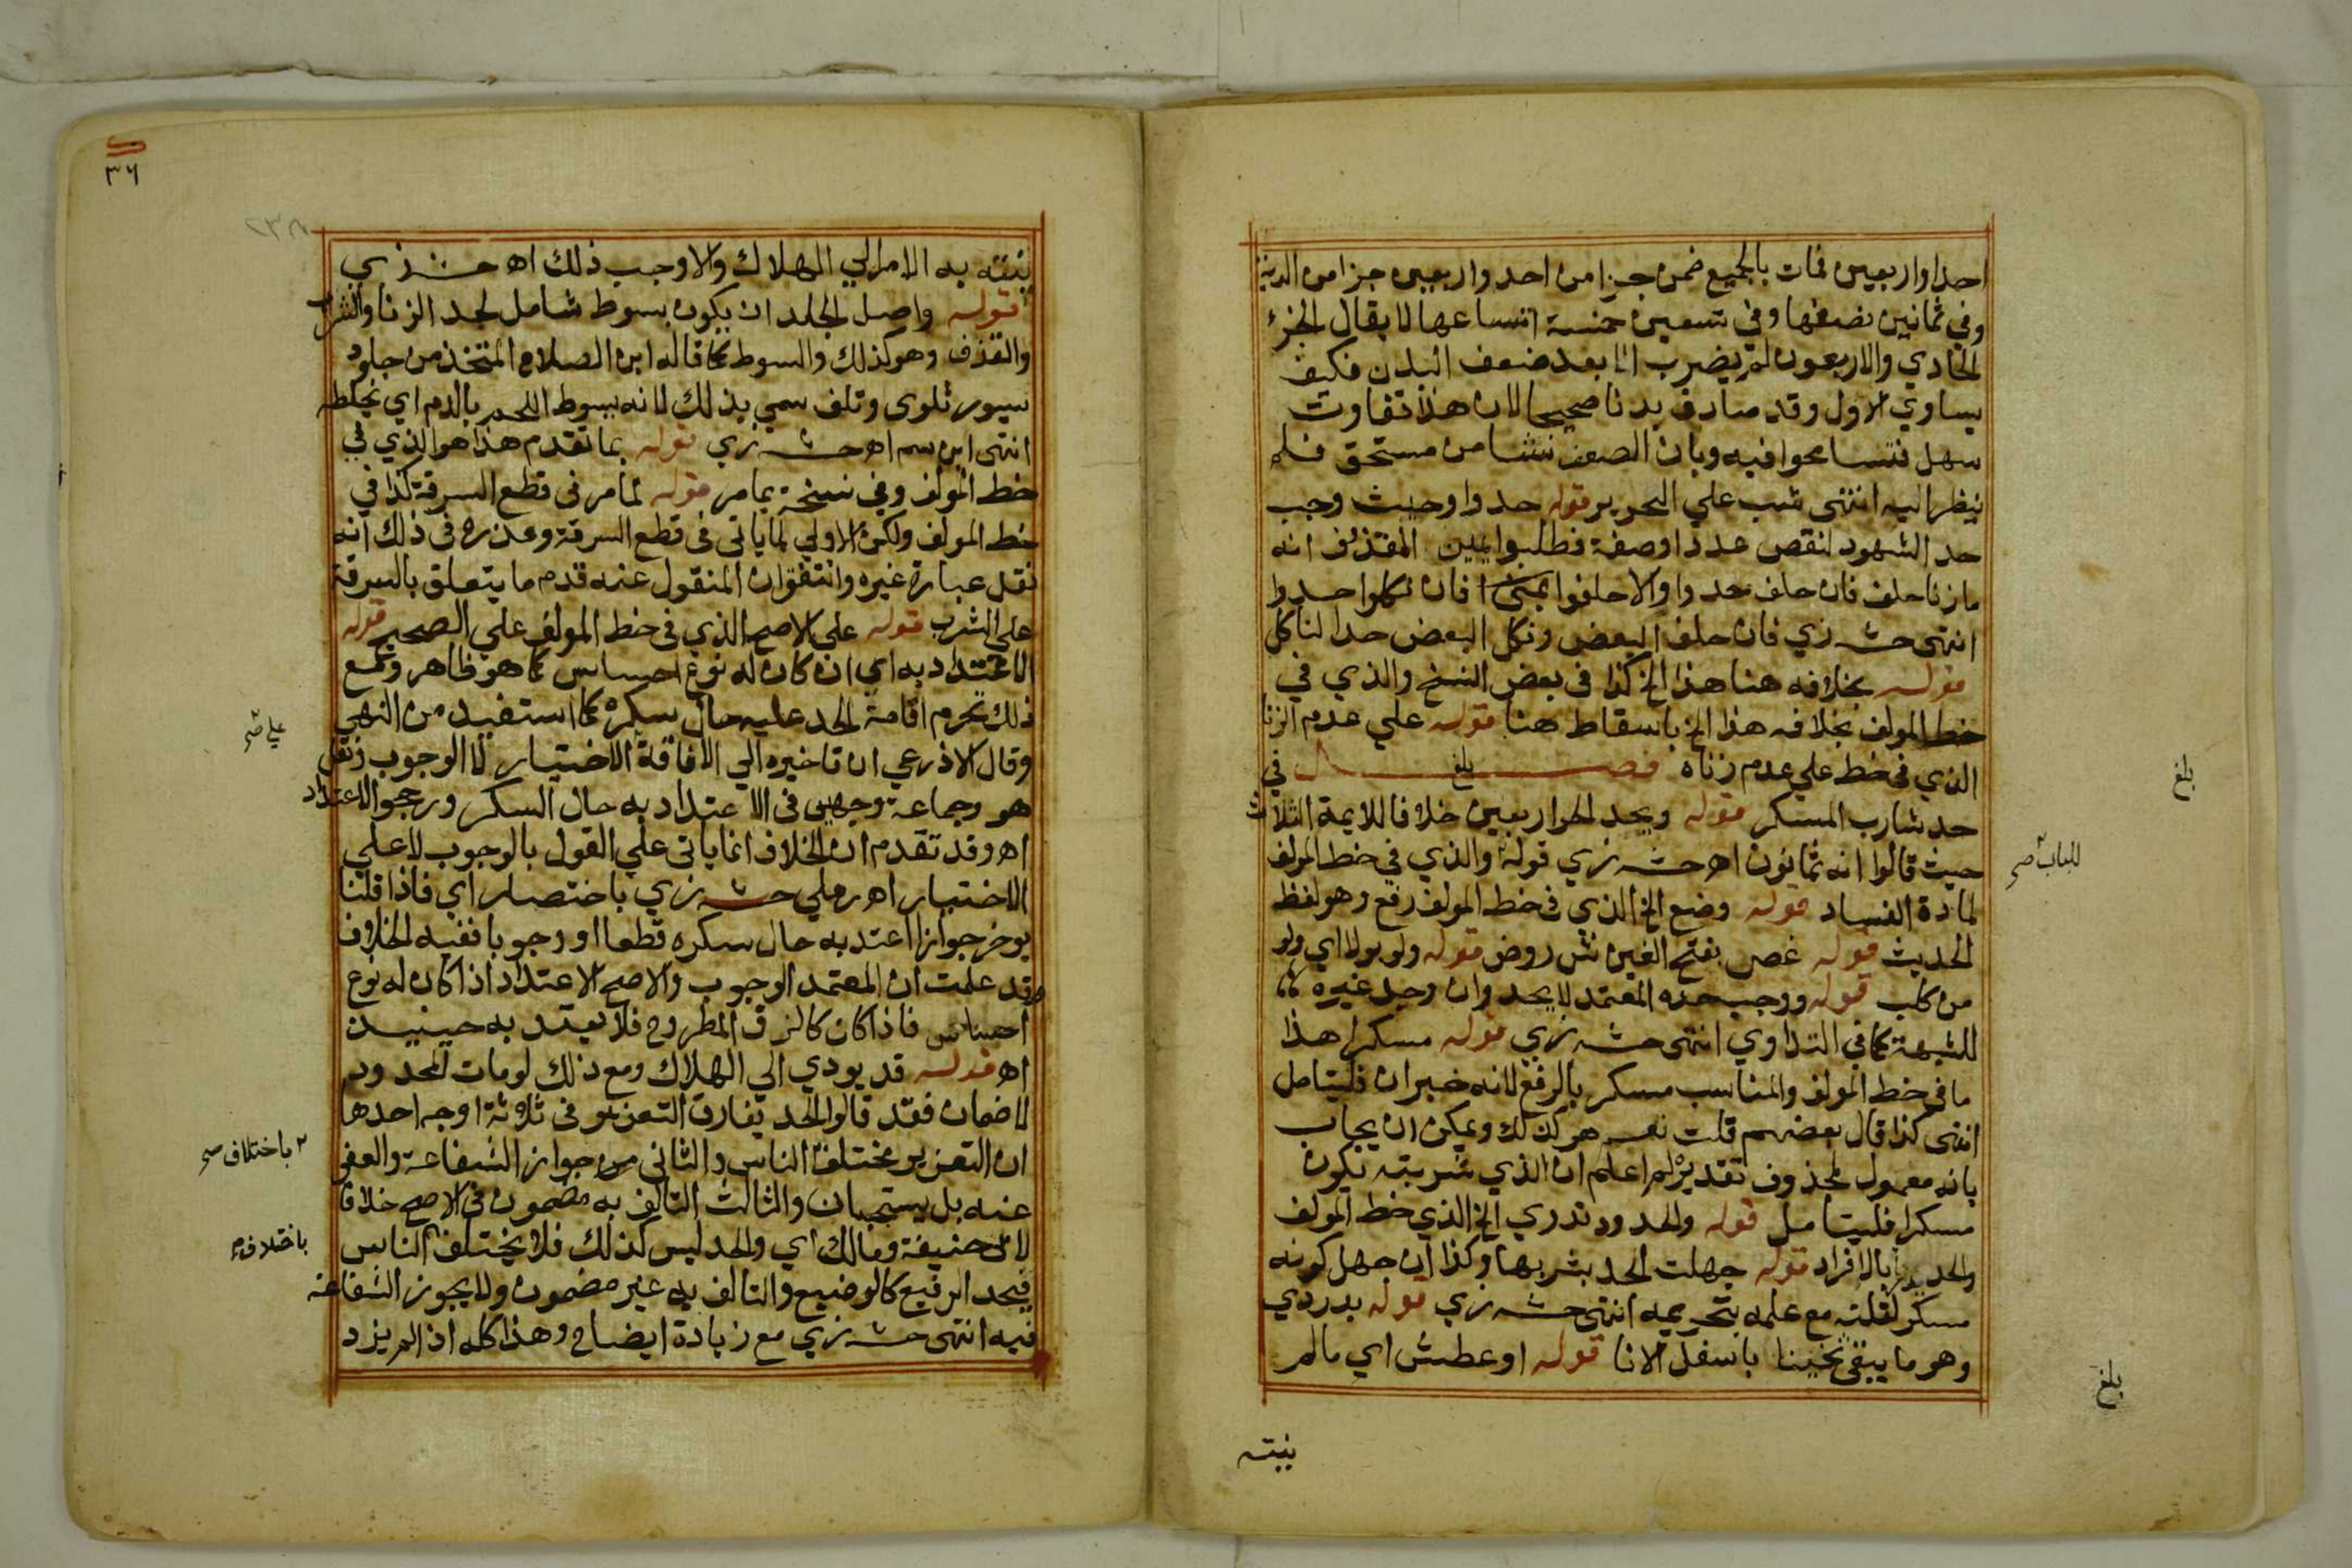 احدا واربعين فمات بالجميع ضمن جزا من احد واربعين جزا من الدية
وفي ثمانين نصفها وفي تسعين خمسة اتساعها لا يقال الجزء
الحادي والاربعون لم يضرب الا بعد ضعف البدن فكيف
يساوي الاول وقد صادف بدنا صحيحا لان هذا تفاوت
سهل فتسامحوا فيه وبان الضعف نشا من مستحق فلم
ينظر اليه انتهى شب علي التحرير قوله حدوا وحيث وجب
حد الشهود لنقص عددا وصفة فطلبوا يمين المقذوف انه
ما زنا حلف فان حلف حدوا والا حلفوا فان نكلوا حدوا
انتهى حش زي فان حلف البعض ونكل البعض حد الناكل
قوله بخلافه هنا هذا الخ كذا في بعض النسخ والذي في
خط المولف بخلافه هذا الخ باسقاط هنا قوله علي عدم الزنا
الذي في خط علي عدم زناه فصل في
بلغ
حد شارب المسكر قوله ويحد الحر اربعين خلافا للايمة الثلاث
حيث قالوا انه ثمانون اه حش زي قوله والذي في خط المولف
لمادة الفساد قوله وضع الخ الذي في خط المولف رفع وهو لفظ
الحديث قوله غص بفتح الغين ش روض قوله ولو بولا اي ولو
من كلب قوله ووجب حده المعتمد لا يحد وان وجد غيره
للشبهة كما في التداوي انتهى حش زي قوله مسكرا هذا
ما في خط المولف والمناسب مسكر بالرفع لانه خبر ان فليتامل
انتهى كذا قال بعضهم قلت نعم هو كذلك ويمكن ان يجاب
بانه معمول لمحذوف تقديره لم اعلم ان الذي شربته يكون
مسكرا فليتامل قوله والحدود تدري الخ الذي خط المولف
والحد بالافراد قوله جهلت الحد بشربها وكذا ان جهل كونه
مسكر لقلته مع علمه بتحريمه انتهى حش زي قوله بدردي
وهو ما يبقى ثخينا باسفل الانا قوله او عطش اي ما لم
ينته
بلغ
للباب صح
بلغ
٣٦
٢٣٨
ينته به الامر الي الهلاك والا وجب ذلك اه حش زي
قوله واصل الجلد ان يكون بسوط شامل لحد الزنا والشرب
والقذف وهو كذلك والسوط كما قاله ابن الصلاح المتخذ من جلود
سيور تلوى وتلف سمي بذلك لانه يسوط اللحم بالدم اي يخلطه
انتهى ابن سم اه حش زي قوله بما تقدم هذا هو الذي في
خط المولف وفي نسخة بما مر قوله لما مر في قطع السرقة كذا في
خط المولف ولكن الاولي لما ياتي في قطع السرقة وعذره في ذلك انه
نقل عبارة غيره واتفق ان المنقول عنه قدم ما يتعلق بالسرقة
على الشرب قوله علي الاصح الذي في خط المولف علي الصحيح قوله
الاعتداد به اي ان كان له نوع احساس كما هو ظاهر ومع
ذلك تحرم اقامة الحد عليه حال سكره كما استفيد من النهي
وقال الاذرعي ان تاخيره الي الافاقة للاختيار لا الوجوب ونقل
هو وجماعة وجهين في الاعتداد به حال السكر ورجحوا الاعتداد
اه وقد تقدم ان الخلاف انما ياتي علي القول بالوجوب لا علي
الاختيار اه رملي حش زي باختصار اي فاذا قلنا
يوخر جوازا اعتد به حال سكره قطعا او وجوبا ففيه الخلاف
وقد علمت ان المعتمد الوجوب والاصح الاعتداد اذا كان له نوع
احساس فاذا كان كالزق المطروح فلا يعتد به حينيذ
اه قوله قد يودي الي الهلاك ومع ذلك لو مات المحدود
لا ضمان فقد قالوا الحد يفارق التعزير في ثلاثة اوجه احدها
ان التعزير يختلف الناس والثاني جواز الشفاعة والعفو
عنه بل يستحبان والثالث التالف به مضمون في الاصح خلافا
لابي حنيفة ومالك اي والحد ليس كذلك فلا يختلف الناس
فيحد الرفيع كالوضيع والتالف به غير مضمون ولا يجوز الشفاعة
فيه انتهى حش زي مع زيادة ايضاح وهذا كله اذا لم يزد
علي صح
٢ باختلاف صح
باختلاف